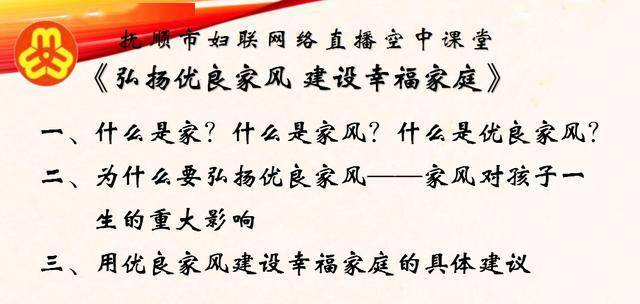 抚顺市妇联网络直播空中课堂
《弘扬优良家风 建设幸福家庭》
一、什么是家？什么是家风？什么是优良家风？
二、为什么要弘扬优良家风——家风对孩子一
生的重大影响
三、用优良家风建设幸福家庭的具体建议